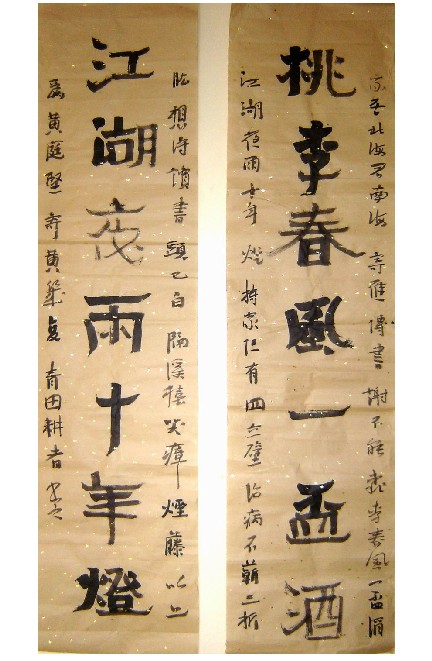 我居北海君南海 寄雁傳書謝不能 桃李春風一盃酒
桃李春風一盃酒
江湖夜雨十年燈 持家但有四立壁 治病不蘄三折
肱 想得讀書頭已白 隔溪猿哭瘴煙藤 以上
江湖夜雨十年燈
為黃庭堅寄黃幾復 青田耕者